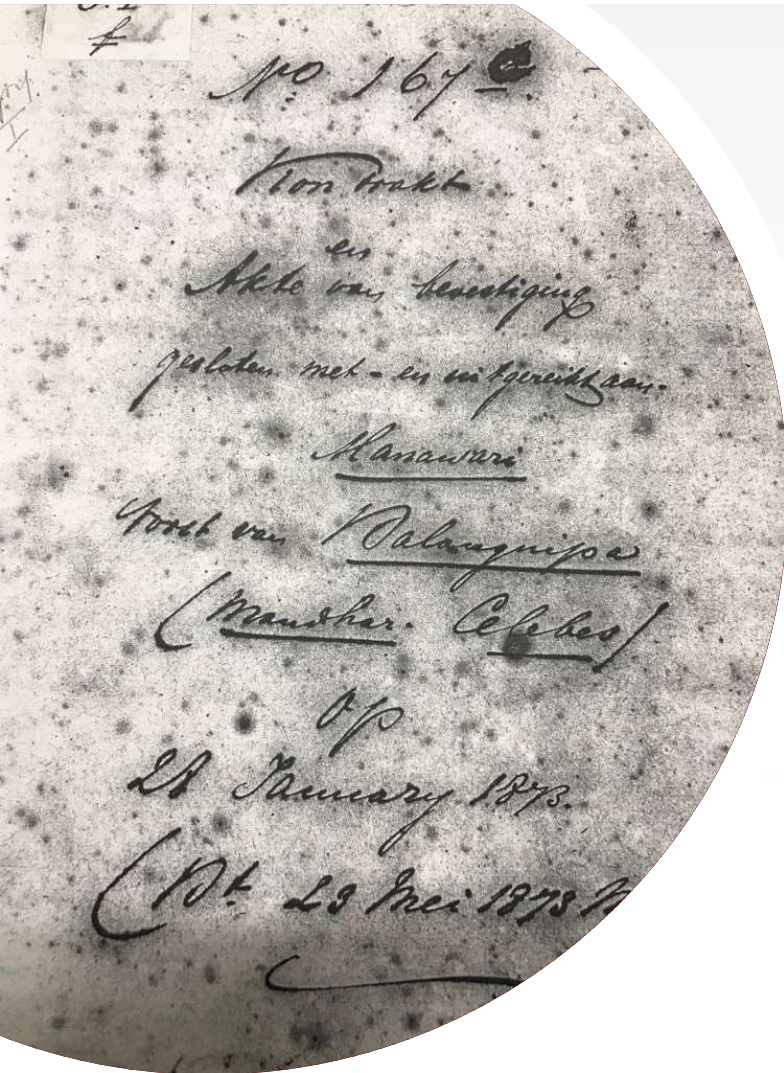 No 167
Kontrakt
en
Akte van bevestiging
gesloten met - en uitgereikt aan -
Manawari
Vorst van Balangnipa
(Mandhar. Celebes)
op
28 January 1873.
(Bt 23 Mei 1873 N